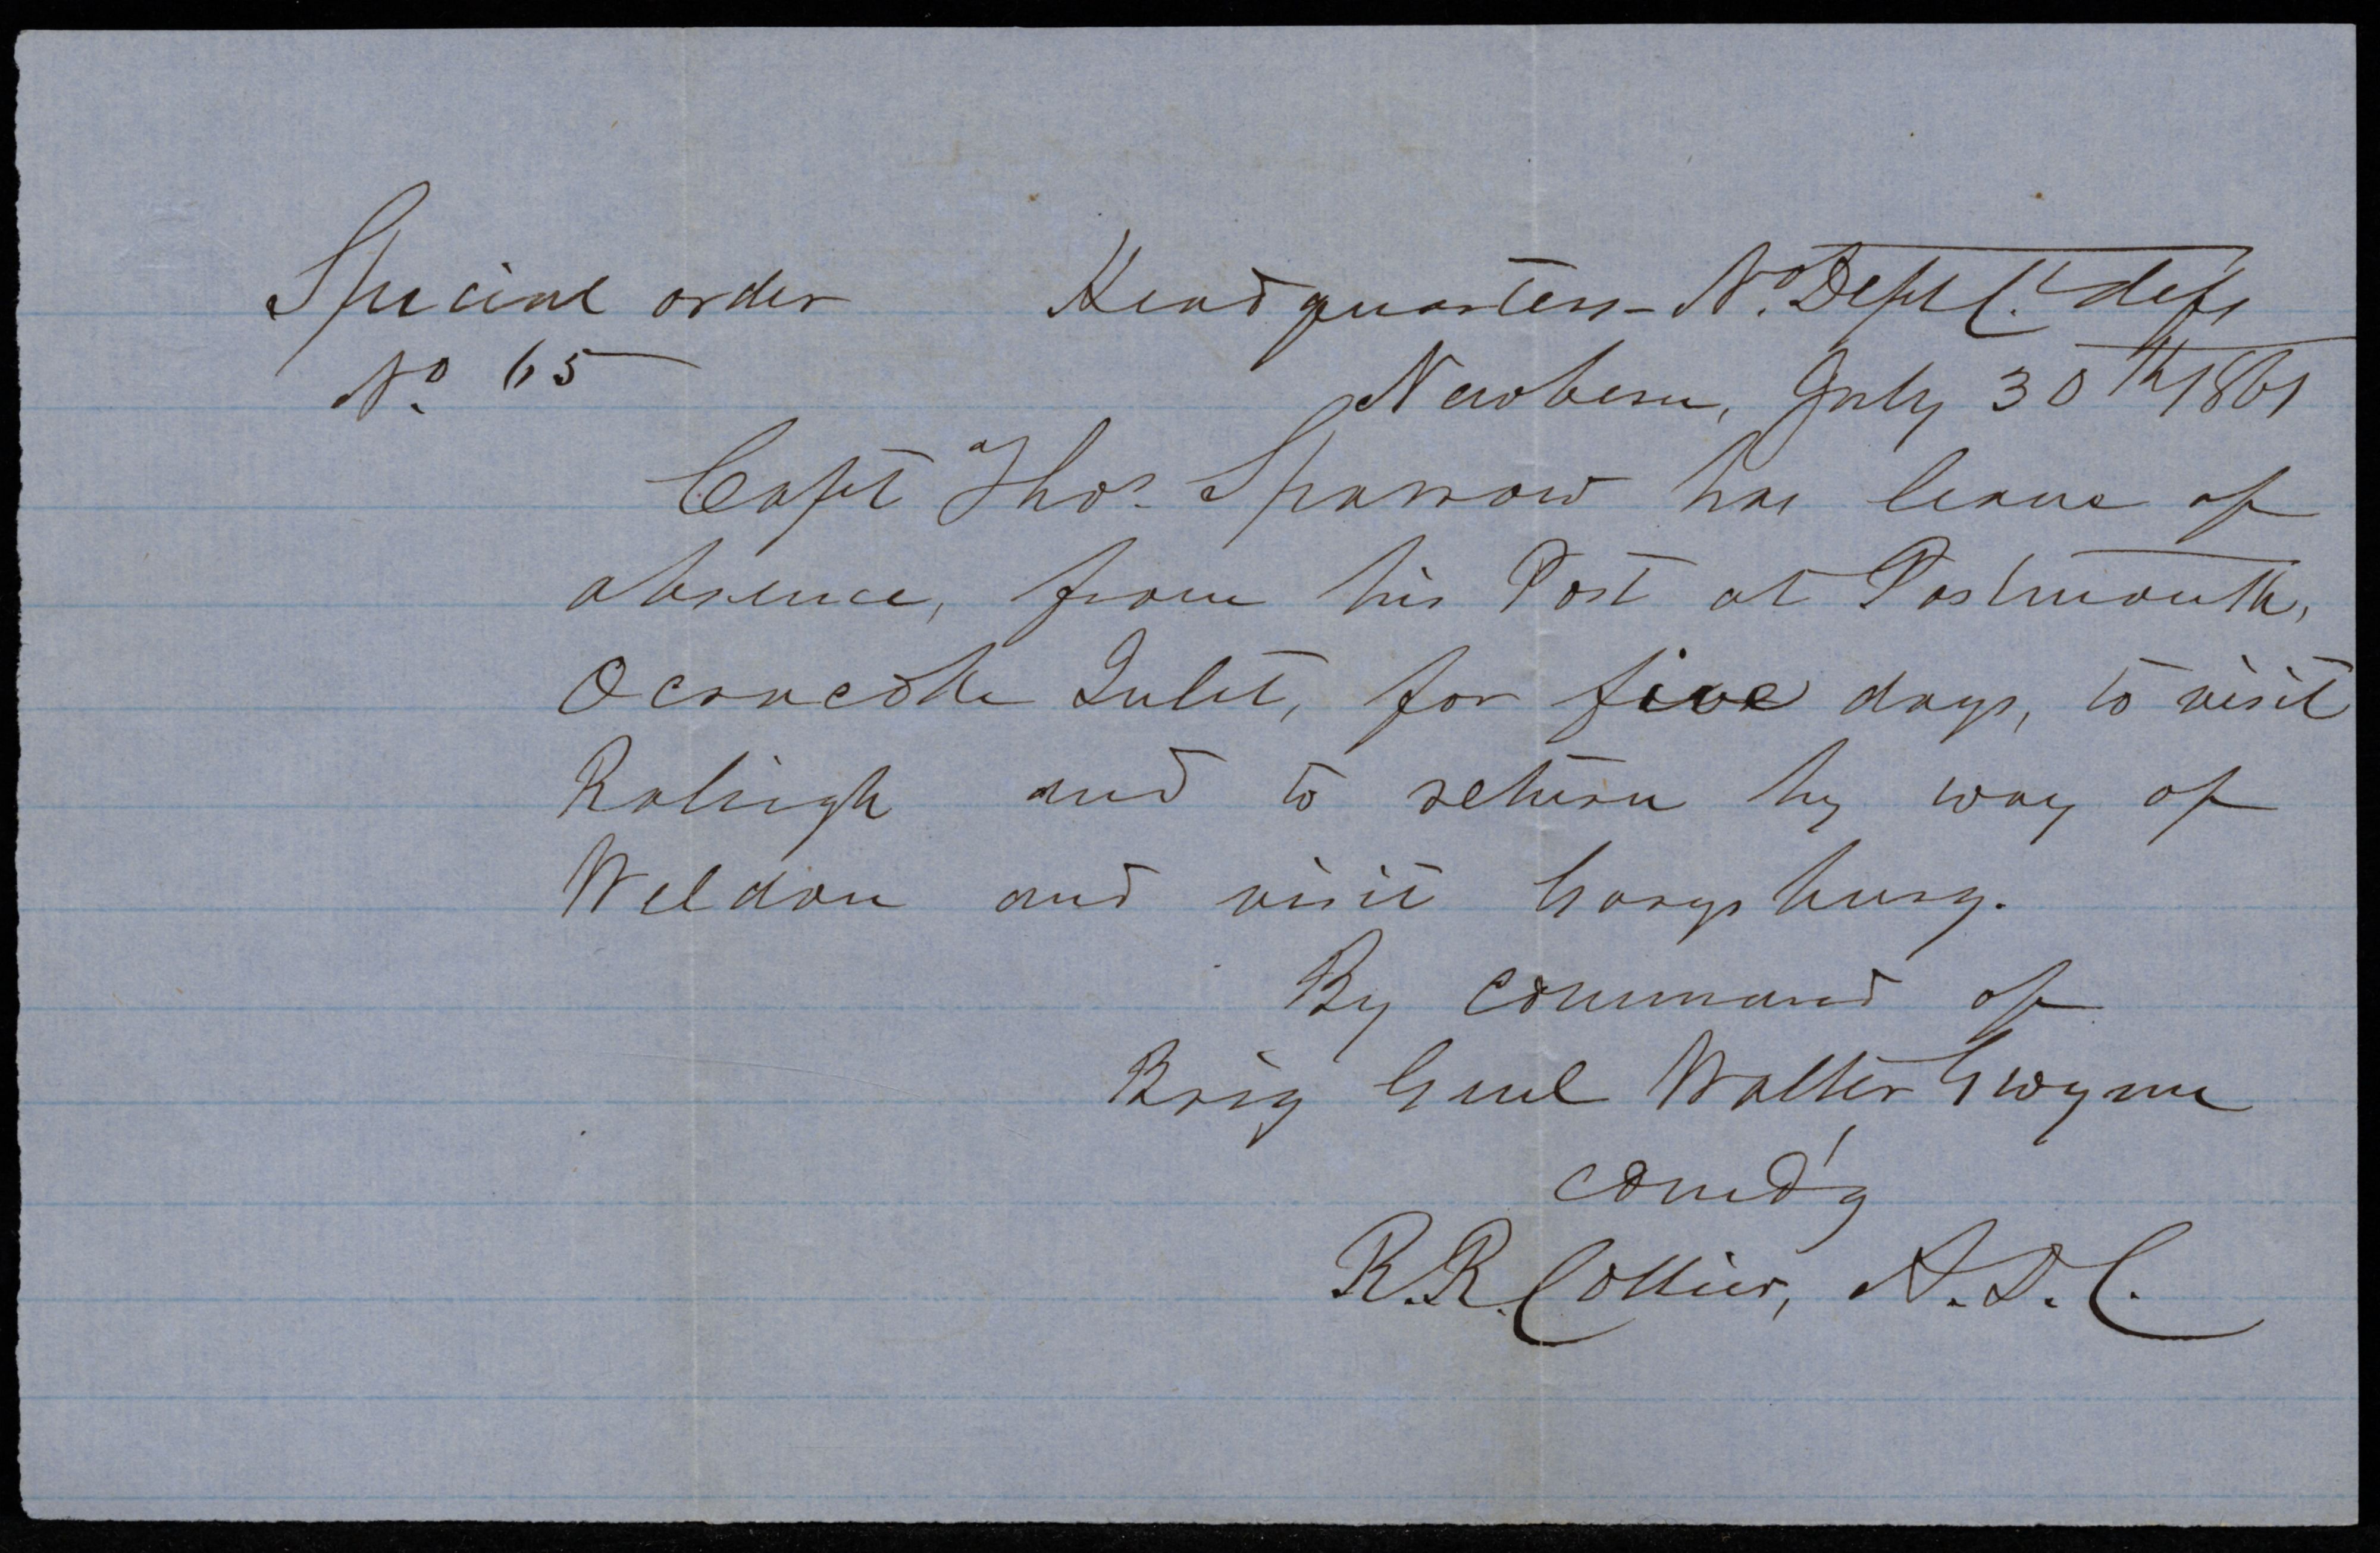 Special order Headquarters - No. Dept C. defs
No. 65 Newbern, July 30th 1861
Capt Thos. Sparrow has leave of
absence, from his Post at Portsmouth,
Ocracoke Inlet, for five days, to visit
Raleigh and to return by way of
Weldon and visit Garysburg.
By command of
Brig Genl Walter Gwynn
comd'g
R.R. Collier, A.D.C.